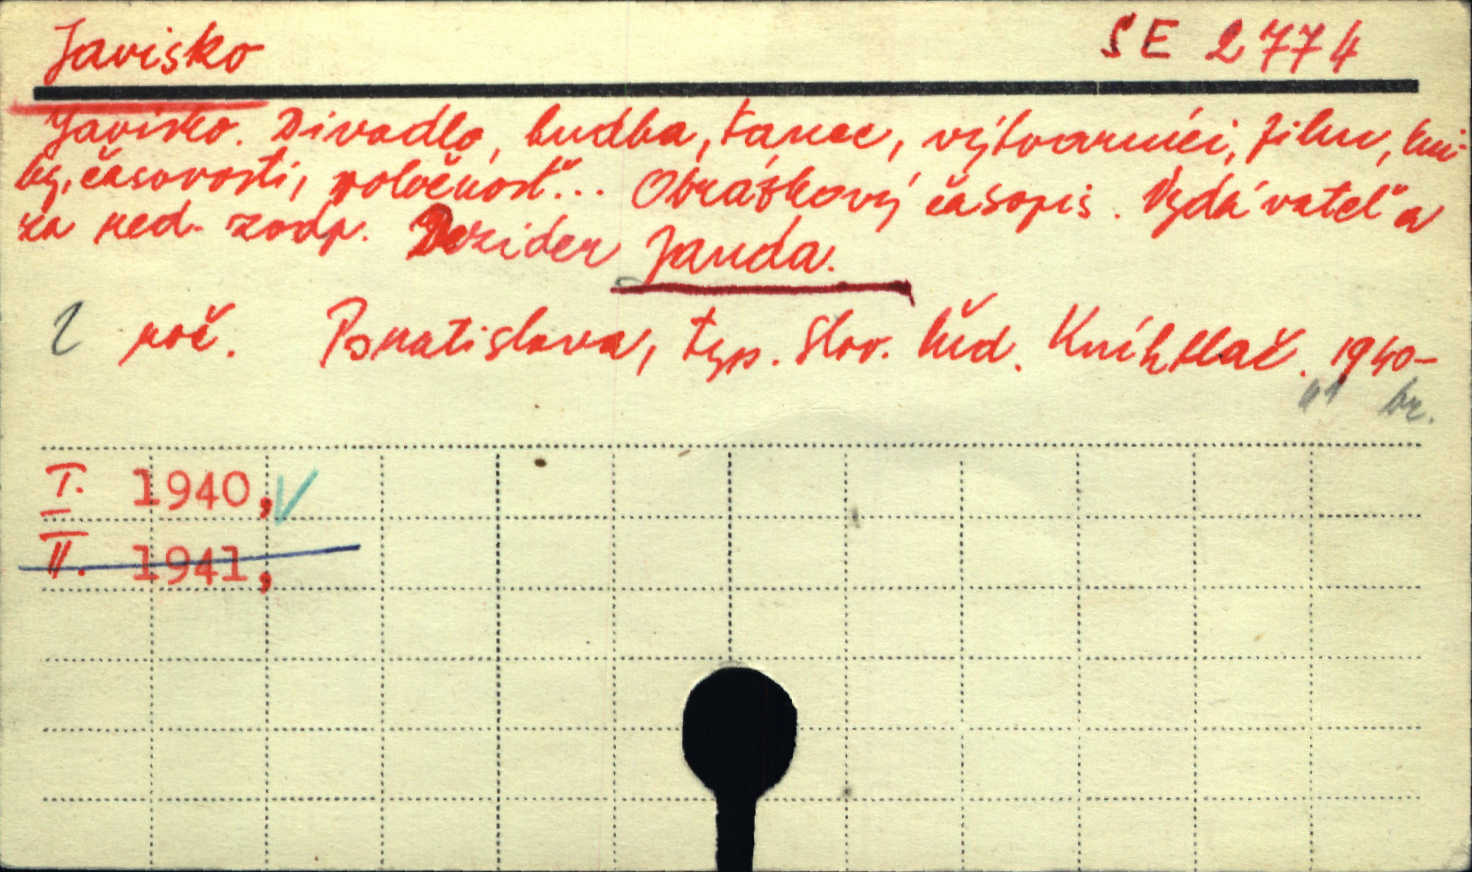 Javisko SE 2774
Javisko. Divadlo, hudba, tanec, výtvarníci, film, kni-
hy, časovosti, spoločnosť... Obrázkový časopis. Vydávateľ a
za red. zodp. Dezider Janda.
2 roč. Bratislava, typ. Slov. ľud. Kníhtlač. 1940-
41 br.
I. 1940,
II. 1941,